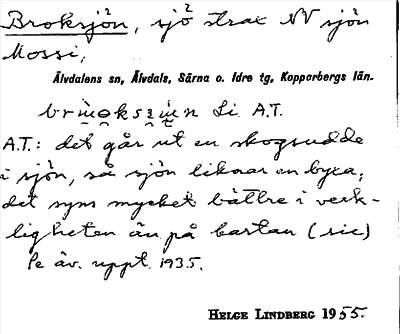 Broksjön, sjö² strax NV sjön
Mossi,
Älvdalens sn, Älvdals, Särna o. Idre tg, Kopparbergs län.
Li A.T.
A.T.: det går ut en skogsudde
i sjön, så sjön liknar en byxa;
det syns mycket bättre i verk-
ligheten än på kartan (sic)
Se äv. uppt. 1935.
HELGE LINDBERG 1955.